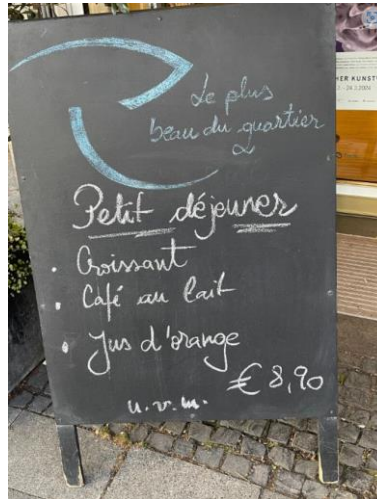 Le plus
beau du quartier
Petit déjeuner
• Croissant
• Café au lait
• Jus d'orange
€ 8,90
u.v.m.
HER KUNST